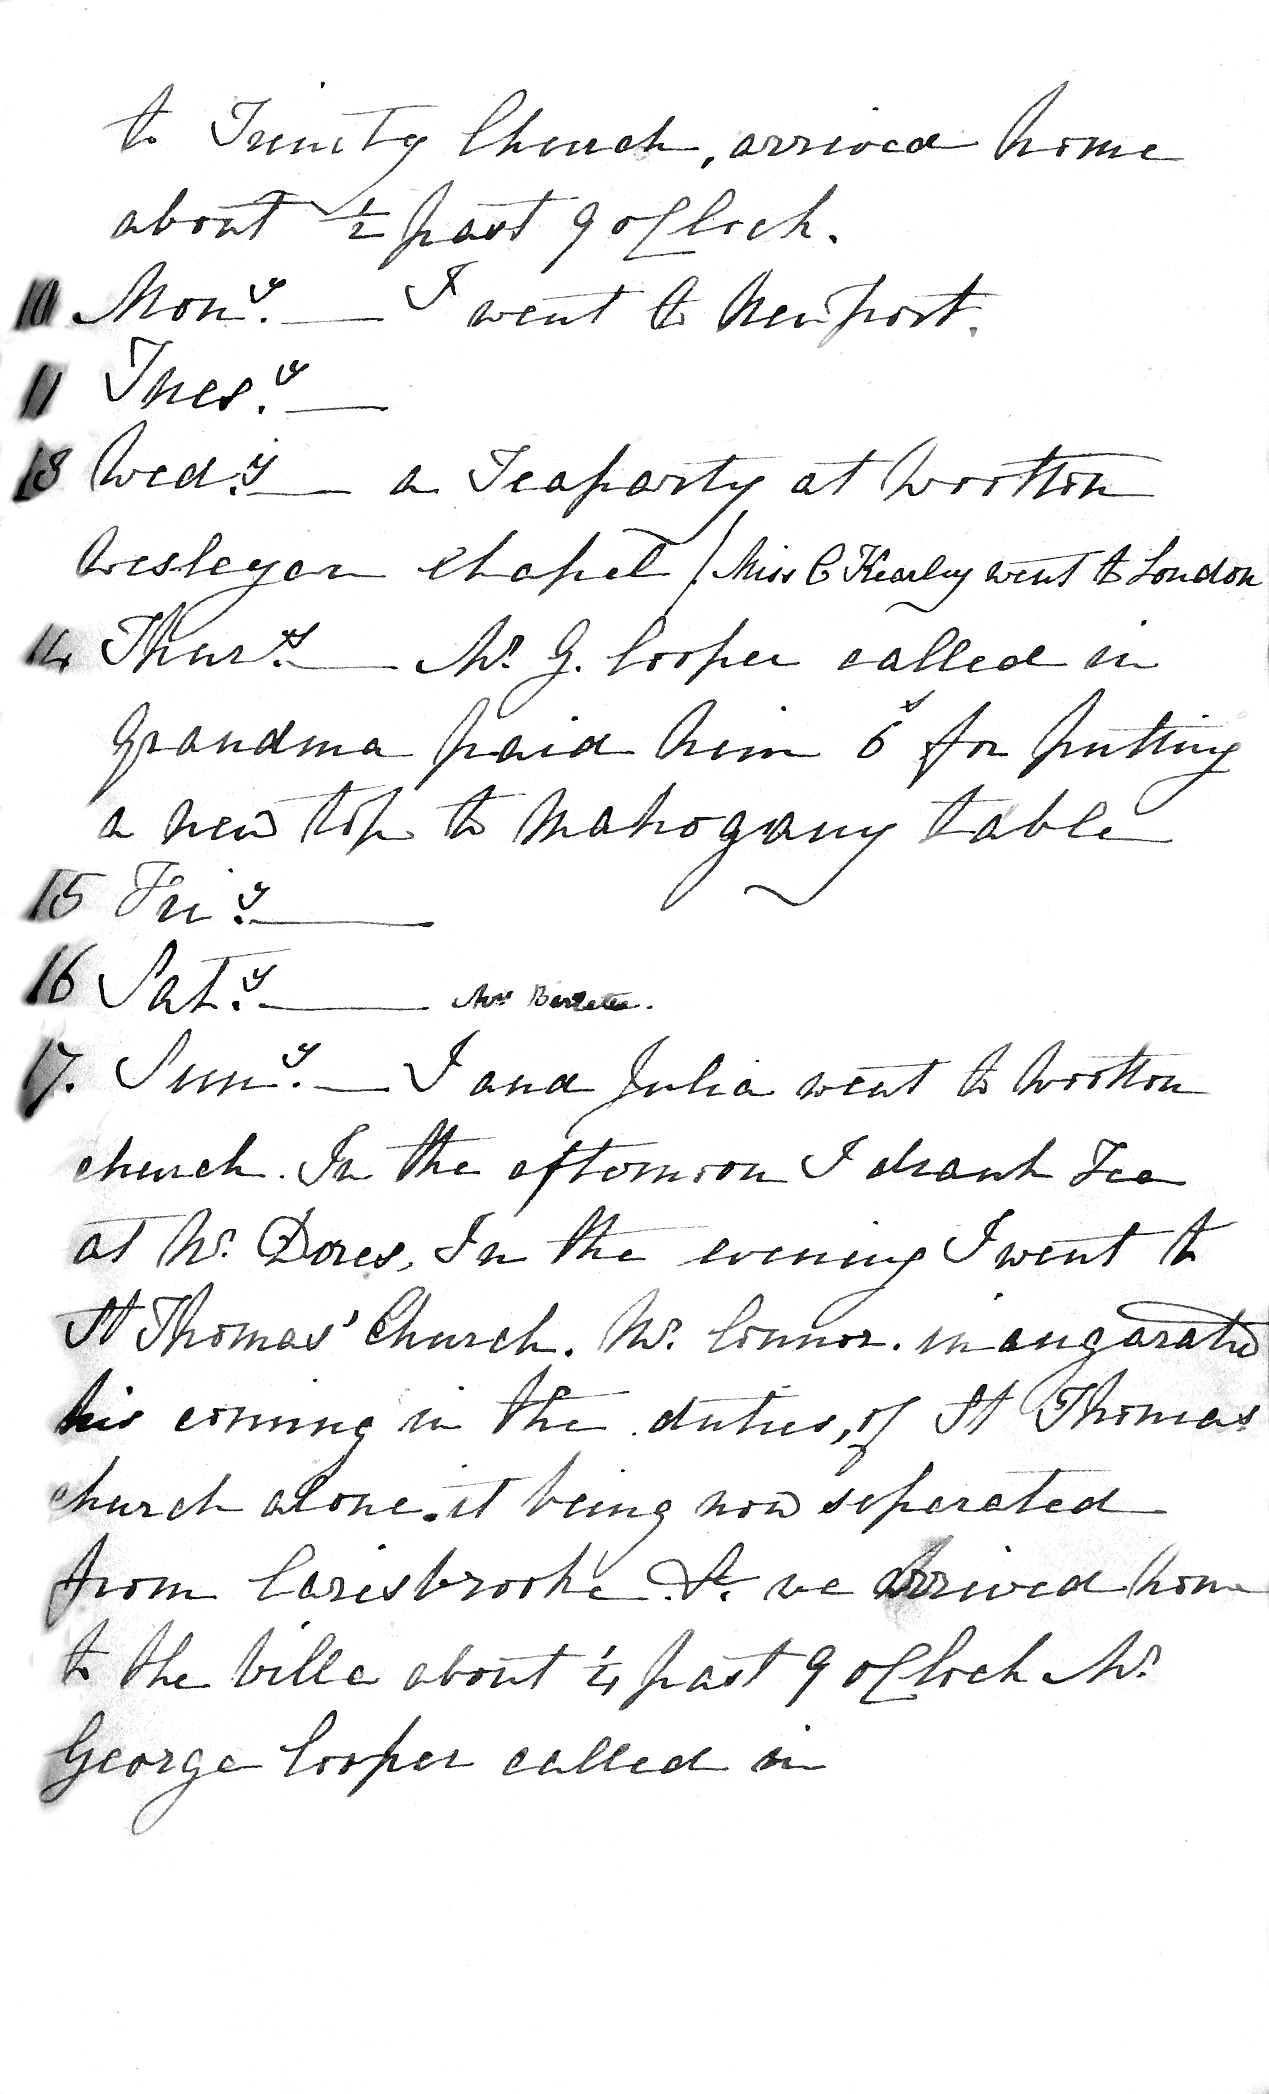 to Trinity Church, arrived home
about ½ past 9 o'Clock.
Mon.y — I went to Newport.
11 Tues.y —
13 Wed.y — a Teaparty at Wootton
Wesleyan Chapel / Miss C Kearley went to London
14 Thurs.y — Mr. G. Cooper called in
Grandma paid him 6s for putting
a new top to Mahogany table
15 Fri.y —
16 Sat.y — Mrs
17. Sun.y — I and Julia went to Wootton
church. In the afternoon I drank Tea
at Mr. Dores, In the evening I went to
St Thomas' Church. Mr. Connor. inaugarated
his coming in the duties, of St Thomas
church alone. it being now separated
from Carisbrooke &c. we arrived home
to the Ville about ¼ past 9 o'Clock Mr
George Cooper called in